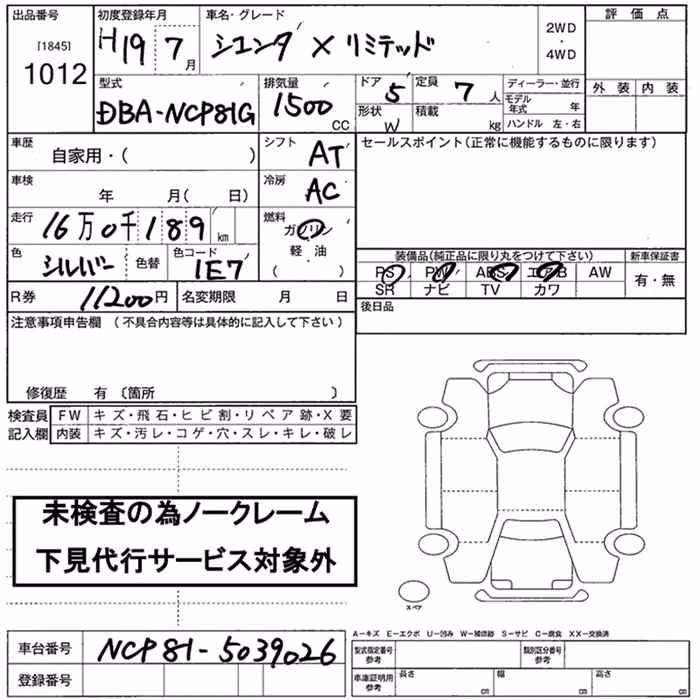 出品番号 初度登録年月 車名・グレード 評価点
[1845] H19 7月 シエンタ X リミテッド 2WD・4WD
1012
型式 排気量 ドア 5 定員 7人 ディーラー・並行 外装 内装
DBA-NCP81G 1500CC 形状 W 積載 kg モデル年式 年
ハンドル 左・右
車歴 自家用・( ) シフト AT セールスポイント(正常に機能するものに限ります)
車検 年 月( 日) 冷房 AC
走行 16万0千189km 燃料 ガソリン・軽・油 ( )
色 シルバー 色替 色コード 1E7 装備品(純正品に限り丸をつけて下さい) 新車保証書
PS PW ABS エアB AW 有・無
SR ナビ TV カワ
R券 11200円 名変期限 月 日 後日品
注意事項申告欄 (不具合内容等は具体的に記入して下さい)
修復歴 有 〔箇所 〕
検査員 FW キズ・飛石・ヒビ割・リペア跡・X要
記入欄 内装 キズ・汚レ・コゲ・穴・スレ・キレ・破レ
未検査の為ノークレーム
下見代行サービス対象外
スペア
A-キズ E-エクボ U-凹み W-補修跡 S-サビ C-腐食 XX-交換済
車台番号 NCP81-5039026 型式指定番号 参考 類別区分番号 参考
登録番号 車庫証明用 参考 長さ cm 幅 cm 高さ cm